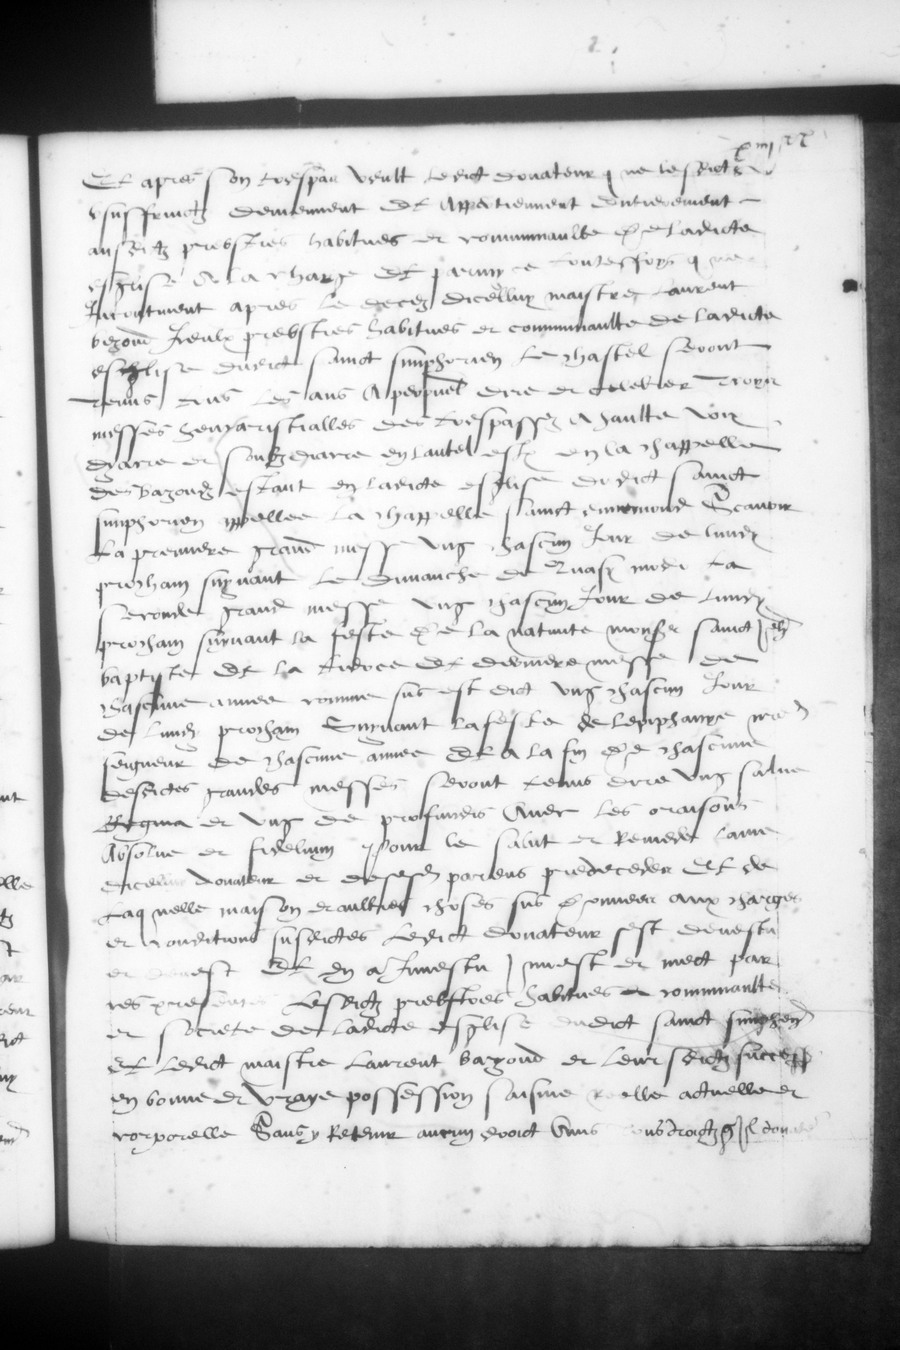 Et apres son trespas veult ledict donateur que lesdictz
usuffruictz deviennent et appertiennent entierement
ausdictz prebstres habitues et communaulte de ladicte
esglise a la charge et par my ce toutesfoys que
apres le decez dicelluy maistre Laurent
bazoud Iceulx prebstres habitues et communaulte de ladicte
esglise dudict sainct simphorien le chastel seront
tenus tous les ans A perpetuel dire et celebrer troys
messes des trespassez A haulte voix
dyacre et soubzdiacre en lautel estz en la chappelle
des bazoudz estant en ladicte esglise dudict sainct
simphorien appellee la chappelle sainct Scavoir
La premiere grand messe ung chascun Jour de lundy
prochain suyvant le dimanche de quasi modo La
seconde grand messe ung chascun Jour de lundy
prochain suyvant la feste de la nativite monsr sainct Jehn
baptiste et la tierce et derniere messe de
chascune annee comme sus est dict ung chascun Jour
de lundy prochain suyvant la feste de lepiphanye nre
seigneur de chascune annee Et a la fin de chascune
desdictes grandes messes seront tenus dire ung salve
Regina et ung de profundis Avec les oraisons
Absolve et fidelium pour le salut et Remede lame
dicelluy donateur et de ses parens predecedes Et de
Laquelle maison et aultres choses sus donnees aux charges
et conditions susdictes Ledict donateur sest devestu
et devest Et en a Investu Invest et mect par
ces presentes Lesdictz prebstres habitues et communaulte
et societe de ladicte esglise dudict sainct simphorien
Et ledict maistre Laurent bazoud et leursdictz success
en bonne et vraye possession saisine reelle actuelle et
corporelle Sans y Retenir aucun droict Ains